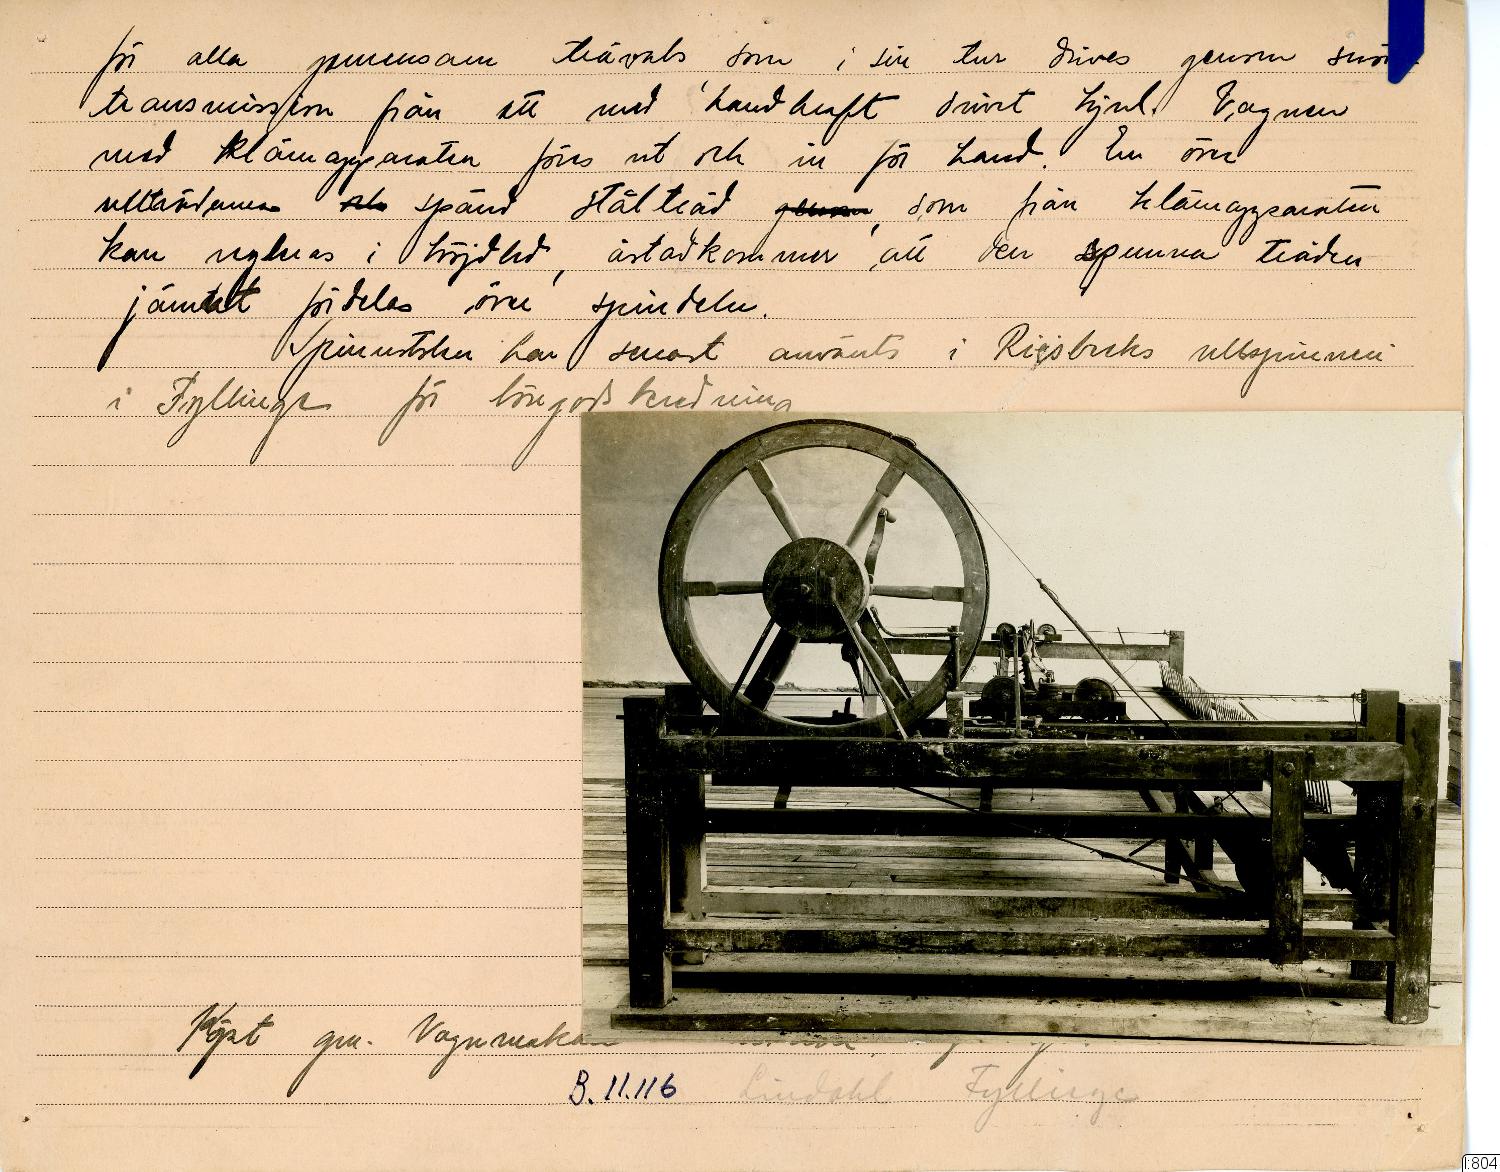 för alla gemensam trävals, som i sin tur drives genom snör-
transmission från ett med handkraft drivet hjul. Vagnen
med klämapparaten föres ut och in för hand. En över
ulltrådarna och spänd ståltråd genom, som från klämapparaten
kan regleras i höjdled, åstadkommer, att den spunna tråden
jämnt fördelas över spindeln.
Spinnstolen har senast använts i Rigsbecks ullspinneri
i Fyllinge för lösgodsberedning
Köpt gm. Vagnmakare
B.11.116 Lindahl Fyllinge
1:804